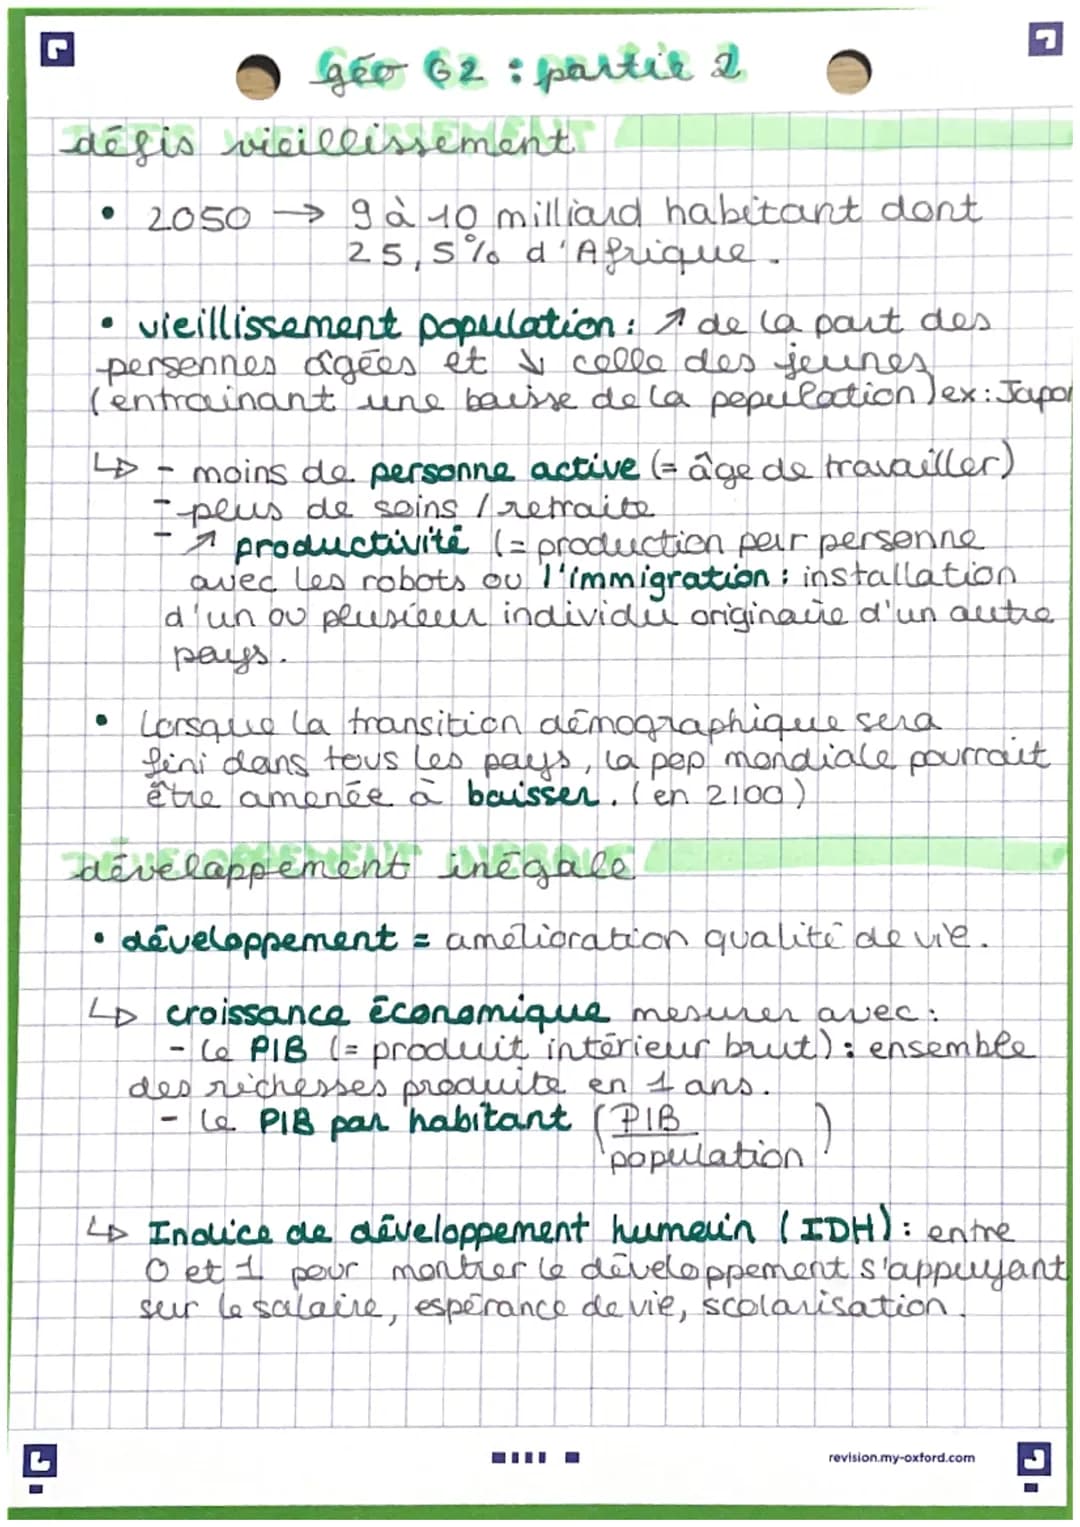 géo G2 : partie 2
défis vieillissement
• 2050 → 9 à 10 milliard habitant dont
25,5% d'Afrique.
• vieillissement population : ↗ de la part des
personnes agées et ↓ celle des jeunes
(entrainant une baisse de la population) ex: Japon
↳ - moins de personne active (= âge de travailler)
- plus de soins / retraite
- ↗ productivité (= production par personne
avec les robots ou l'immigration : installation
d'un ou plusieur individu originaire d'un autre
pays.
• Lorsque la transition démographique sera
fini dans tous les pays, la pop mondiale pourrait
être amenée à baisser. (en 2100)
développement inégale
• développement = amélioration qualité de vie.
↳ croissance économique mesurer avec :
- Le PIB (= produit intérieur brut) : ensemble
des richesses produite en 1 ans.
- Le PIB par habitant (PIB
population)
↳ Indice de développement humain (IDH) : entre
0 et 1 pour montrer le développement s'appuyant
sur le salaire, espérance de vie, scolarisation.
revision.my-oxford.com